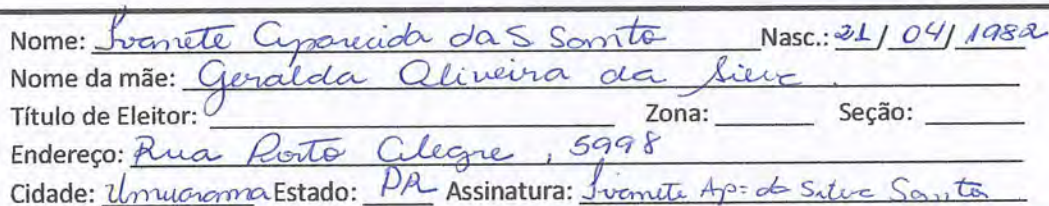 Nome: Ivanete Aparecida da S Santo Nasc.: 21/04/1982
Nome da mãe: Geralda Oliveira da Silva.
Título de Eleitor: Zona: Seção:
Endereço: Rua Porto Alegre, 5998
Cidade: Umuarama Estado: PR Assinatura: Ivanete Ap: da Silva Santos